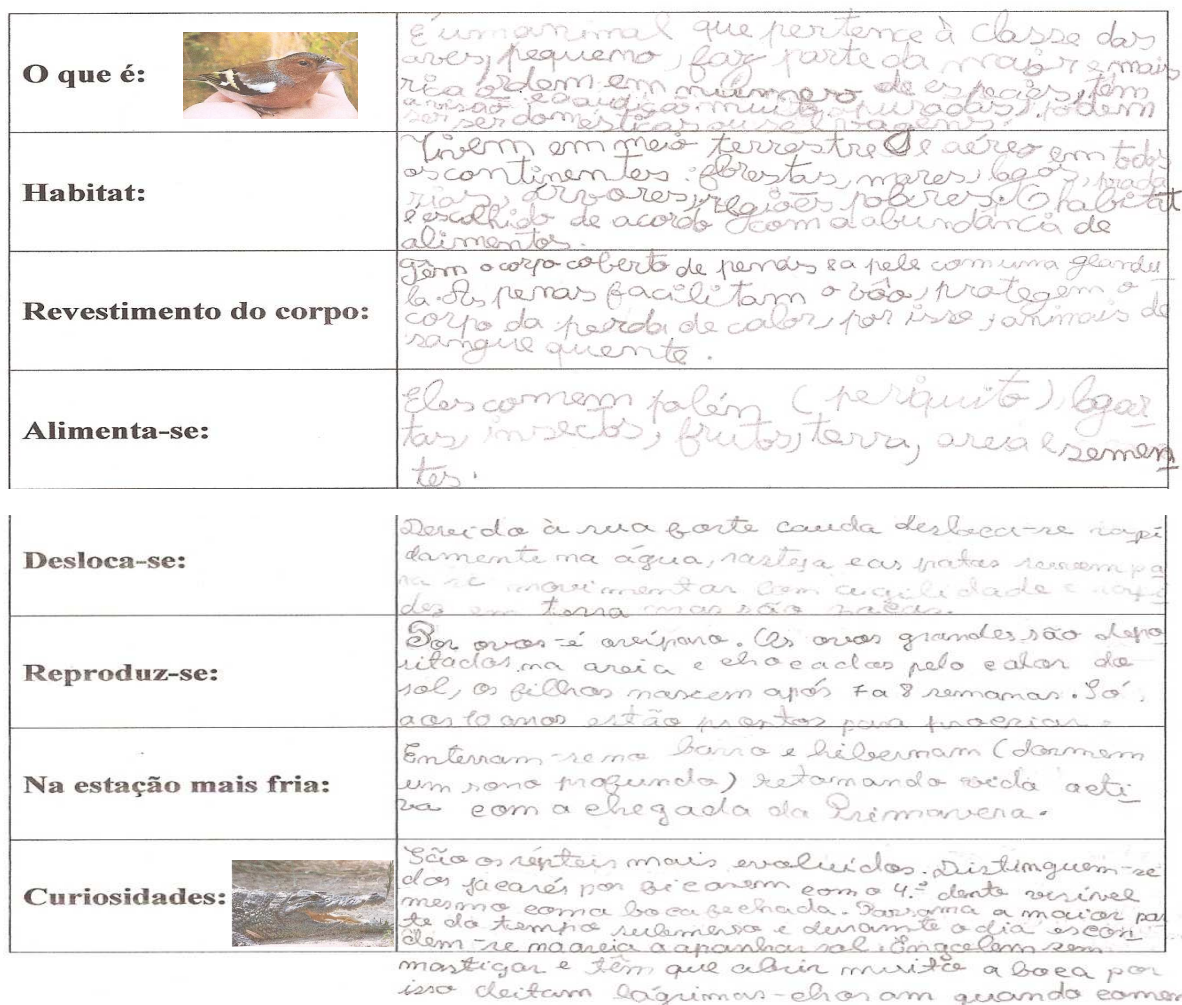 O que é:
É um animal que pertence à classe das
aves, pequeno, faz parte da maior e mais
rica ordem em número de espécies, têm
a visão e a audição muito apuradas, podem
ser ser domésticas ou selvagens.
Habitat:
Vivem em meio terrestre e aéreo em todos
os continentes: florestas, mares, lagos, prada
rias, árvores, regiões polares. O habitat
é escolhido de acordo com a abundância de
alimentos.
Revestimento do corpo:
Têm o corpo coberto de penas e a pele com uma glandu
la. As penas facilitam o vôo, protegem o
corpo da perda de calor, por isso, animais de
sangue quente.
Alimenta-se:
Eles comem polén (periquito), lagar
tas, insectos, frutos, terra, areia e semen
tes.
Desloca-se:
Devido à sua forte cauda desloca-se rapi
damente na água, rasteja e as patas servem pa
ra se movimentar com agilidade e rapi
dez em terra mas são
Reproduz-se:
Por ovos-é ovíparo. Os ovos grandes são depo
sitados na areia e chocados pelo calor do
sol, os filhos nascem após 7 a 8 semanas. Só
aos 10 anos estão prontos para procriar.
Na estação mais fria:
Enterram-se no barro e hibernam (dormem
um sono profundo) retomando vida acti
va com a chegada da Primavera.
Curiosidades:
São os répteis mais evoluídos. Distinguem-se
dos jacarés por ficarem com o 4.º dente visível
mesmo com a boca fechada. Passam a maior par
te do tempo submerso e durante o dia escon
dem-se na areia a apanhar sol. Engolem sem
mastigar e têm que abrir muito a boca por
isso deitam lágrimas-choram quando comem